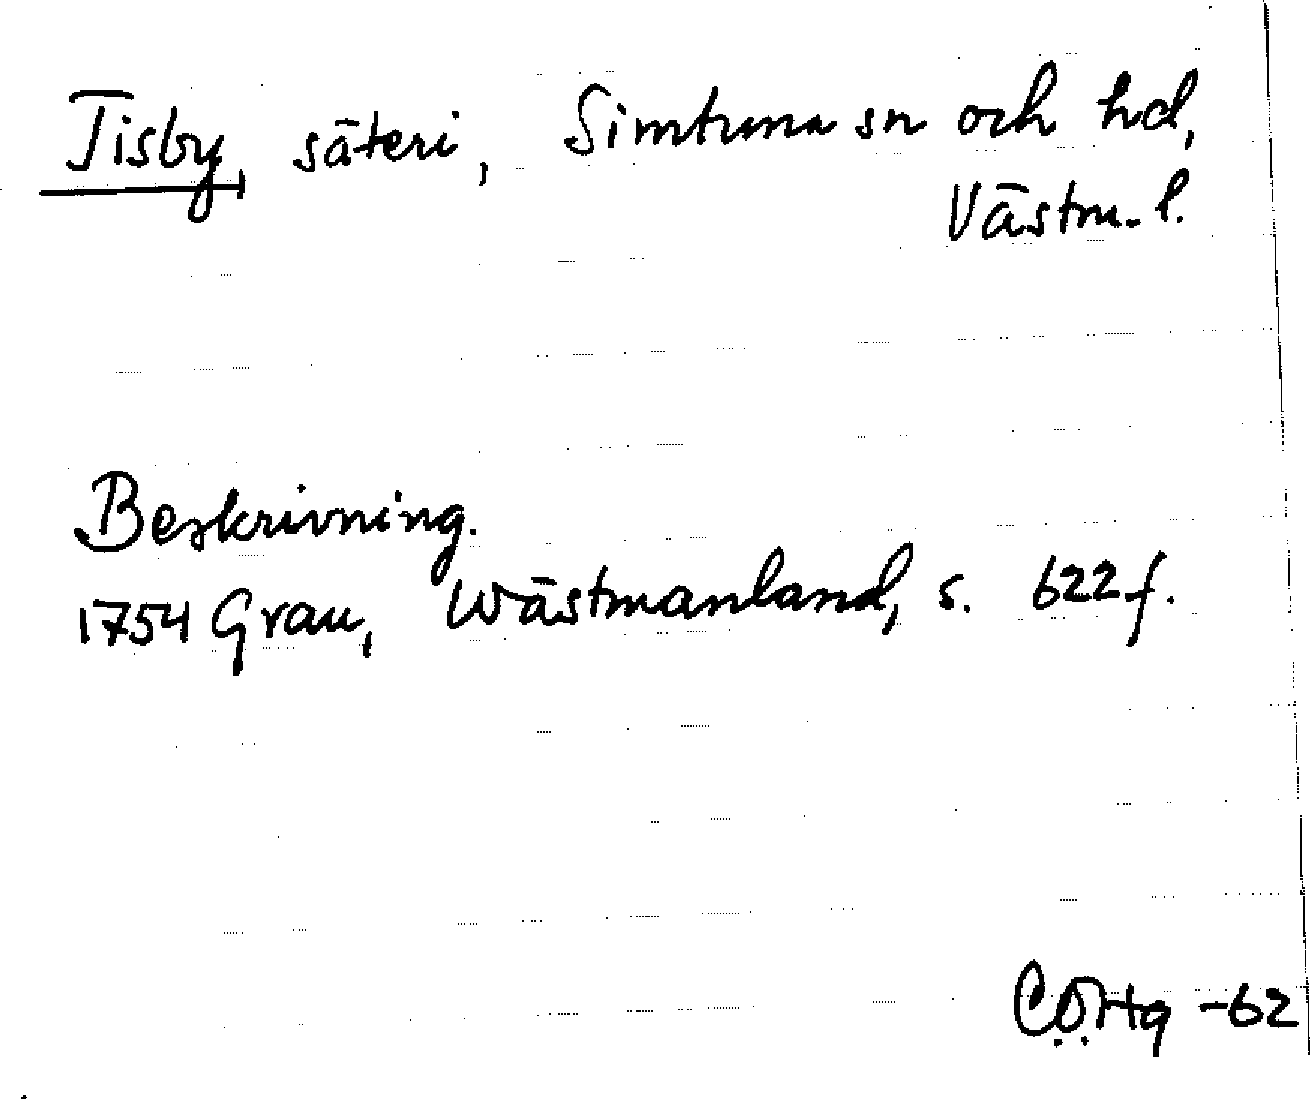 Tisby, säteri, Simtuna sn och hd,
Västm. l.
Beskrivning.
1754 Grau, Wästmanland, s. 622 f.
-62